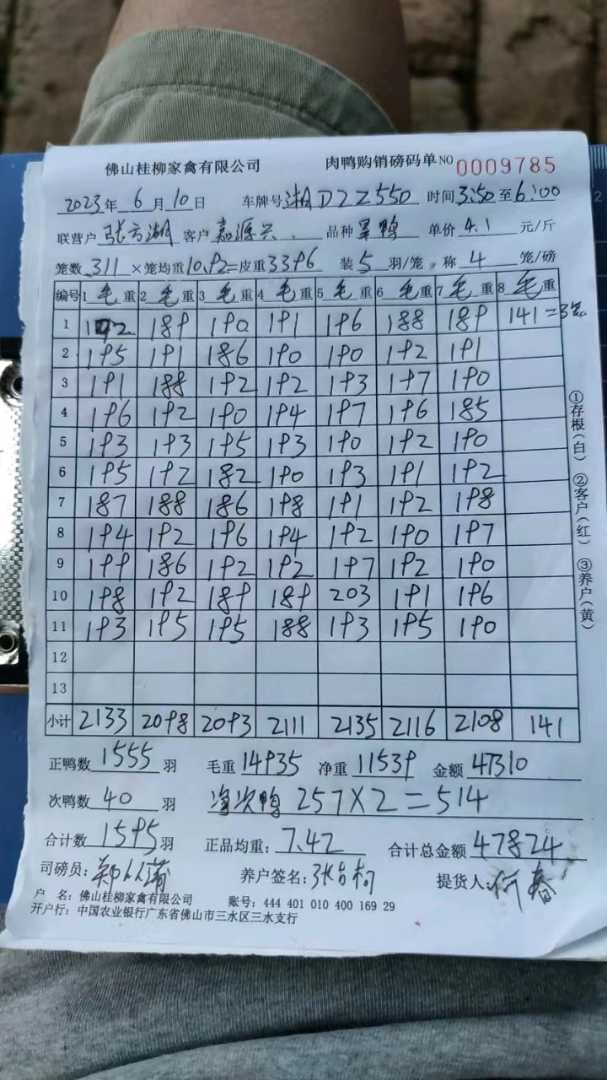 佛山桂柳家禽有限公司 肉鸭购销磅码单NO 0009785
2023年 6 月 10 日 车牌号 湘D2Z550 时间 3:50 至 6:00
联营户 张方湖 客户 嘉源兴 品种 单价 4.1 元/斤
笼数 311 ×笼均重 10.92 =皮重 3396 装 5 羽/笼,称 4 笼/磅
编号 1 毛重 2 毛重 3 毛重 4 毛重 5 毛重 6 毛重 7 毛重 8 毛重
1 192 189 190 191 196 188 189 141=3笼
2 195 191 186 190 190 192 191
3 191 188 192 192 193 197 190
4 196 192 190 194 197 196 185
5 193 193 195 193 190 192 190
6 195 192 182 190 193 191 192
7 187 188 186 198 191 192 198
8 194 192 196 194 192 190 197
9 199 186 192 192 197 192 190
10 198 192 189 189 203 191 196
11 193 195 195 188 193 195 190
12
13
小计 2133 2098 2093 2111 2135 2116 2108 141
正鸭数 1555 羽 毛重 14935 净重 11539 金额 47310
次鸭数 40 羽 净次鸭 257×2=514
合计数 1595 羽 正品均重: 7.42 合计总金额 47824
司磅员: 养户签名: 提货人:
户 名: 佛山桂柳家禽有限公司 账号: 444 401 010 400 169 29
开户行: 中国农业银行广东省佛山市三水区三水支行
①存根(白) ②客户(红) ③养户(黄)